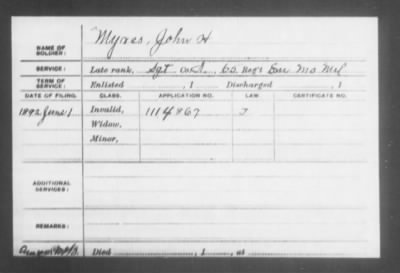 NAME OF SOLDIER: Myres, John H
SERVICE: Late rank, Sgt Co. , 62 Reg't Enr Mo Mil
TERM OF SERVICE: Enlisted , 1 Discharged , 1
DATE OF FILING. CLASS. APPLICATION NO. LAW. CERTIFICATE NO.
1892 June 1 Invalid, 1114867 J
Widow,
Minor,
ADDITIONAL SERVICES:
REMARKS:
Died , 1 , at